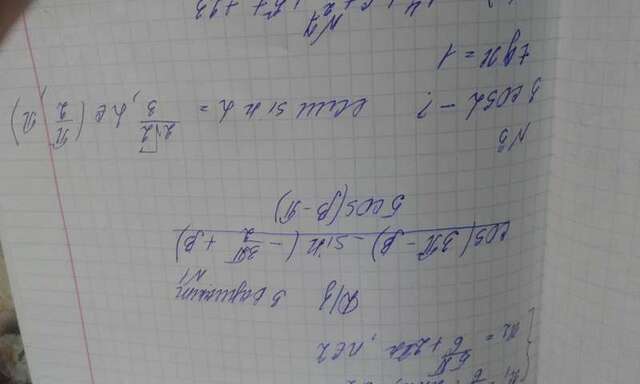 x₂ = 5π/6 + 2πn, n∈Z
Д/з 3 вариант
№1
cos(3π - β) - sin(-3π/2 + β)
5cos(β - π)
№3
3cosα - ? если sin α = 2√2/3, α∈(π/2, π)
tgx = 1
№7